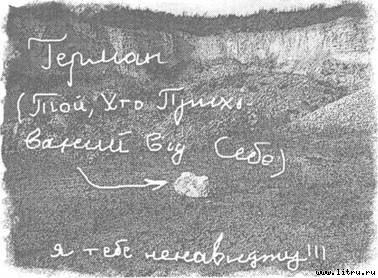 Герман
(Той, Хто Прихо-
ваний Від Себе)
я тебе ненавиджу!!!
www.litru.ru